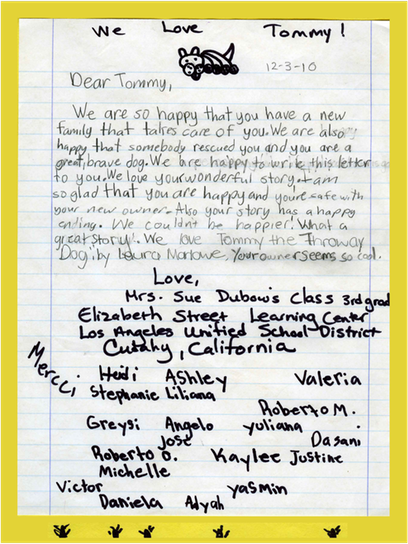 We Love Tommy!
12-3-10
Dear Tommy,
We are so happy that you have a new
family that takes care of you. We are also
happy that somebody rescued you and you are a
great, brave dog. We are happy to write this letter
to you. We love your wonderful story. I am
so glad that you are happy and you're safe with
your new owner. Also your story has a happy
ending. We couldnt be happier! What a
great story!. We love Tommy the Throway
Dog! by Laura Marlowe, Your owner seems so cool.
Love,
Mrs. Sue Dubow's Class 3rd grad
Elizabeth Street Learning Center
Los Angeles Unified School District
Cudahy, California
Mercci
Heidi Ashley Valeria
Stephanie Liliana
Roberto M.
Greysi Angelo yuliana
Jose Dasani
Roberto O. Kaylee Justine
Michelle
Victor yasmin
Daniela Adyah